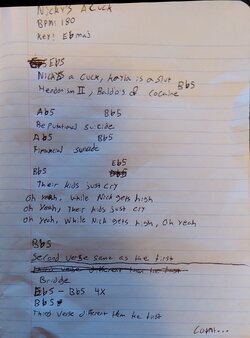 Nicky's A Cuck
BPM: 180
Key: Ebmaj
Eb5
Nicky's a cuck, Kayla is a slut
Bb5
Hedonism II, Baldo's of cocaine
Ab5 Bb5
Reputational suicide
Ab5 Bb5
Financial suicide
Eb5
Bb5
Their kids just cry
Oh yeah, while Nick gets high
Oh yeah, Their kids just cry
Oh yeah, while Nick gets high, oh yeah
Bb5
Second verse same as the first
Third verse different than the first
Bridge
Eb5 - Bb5 4X
Bb5
Third verse different than the first
Cont...